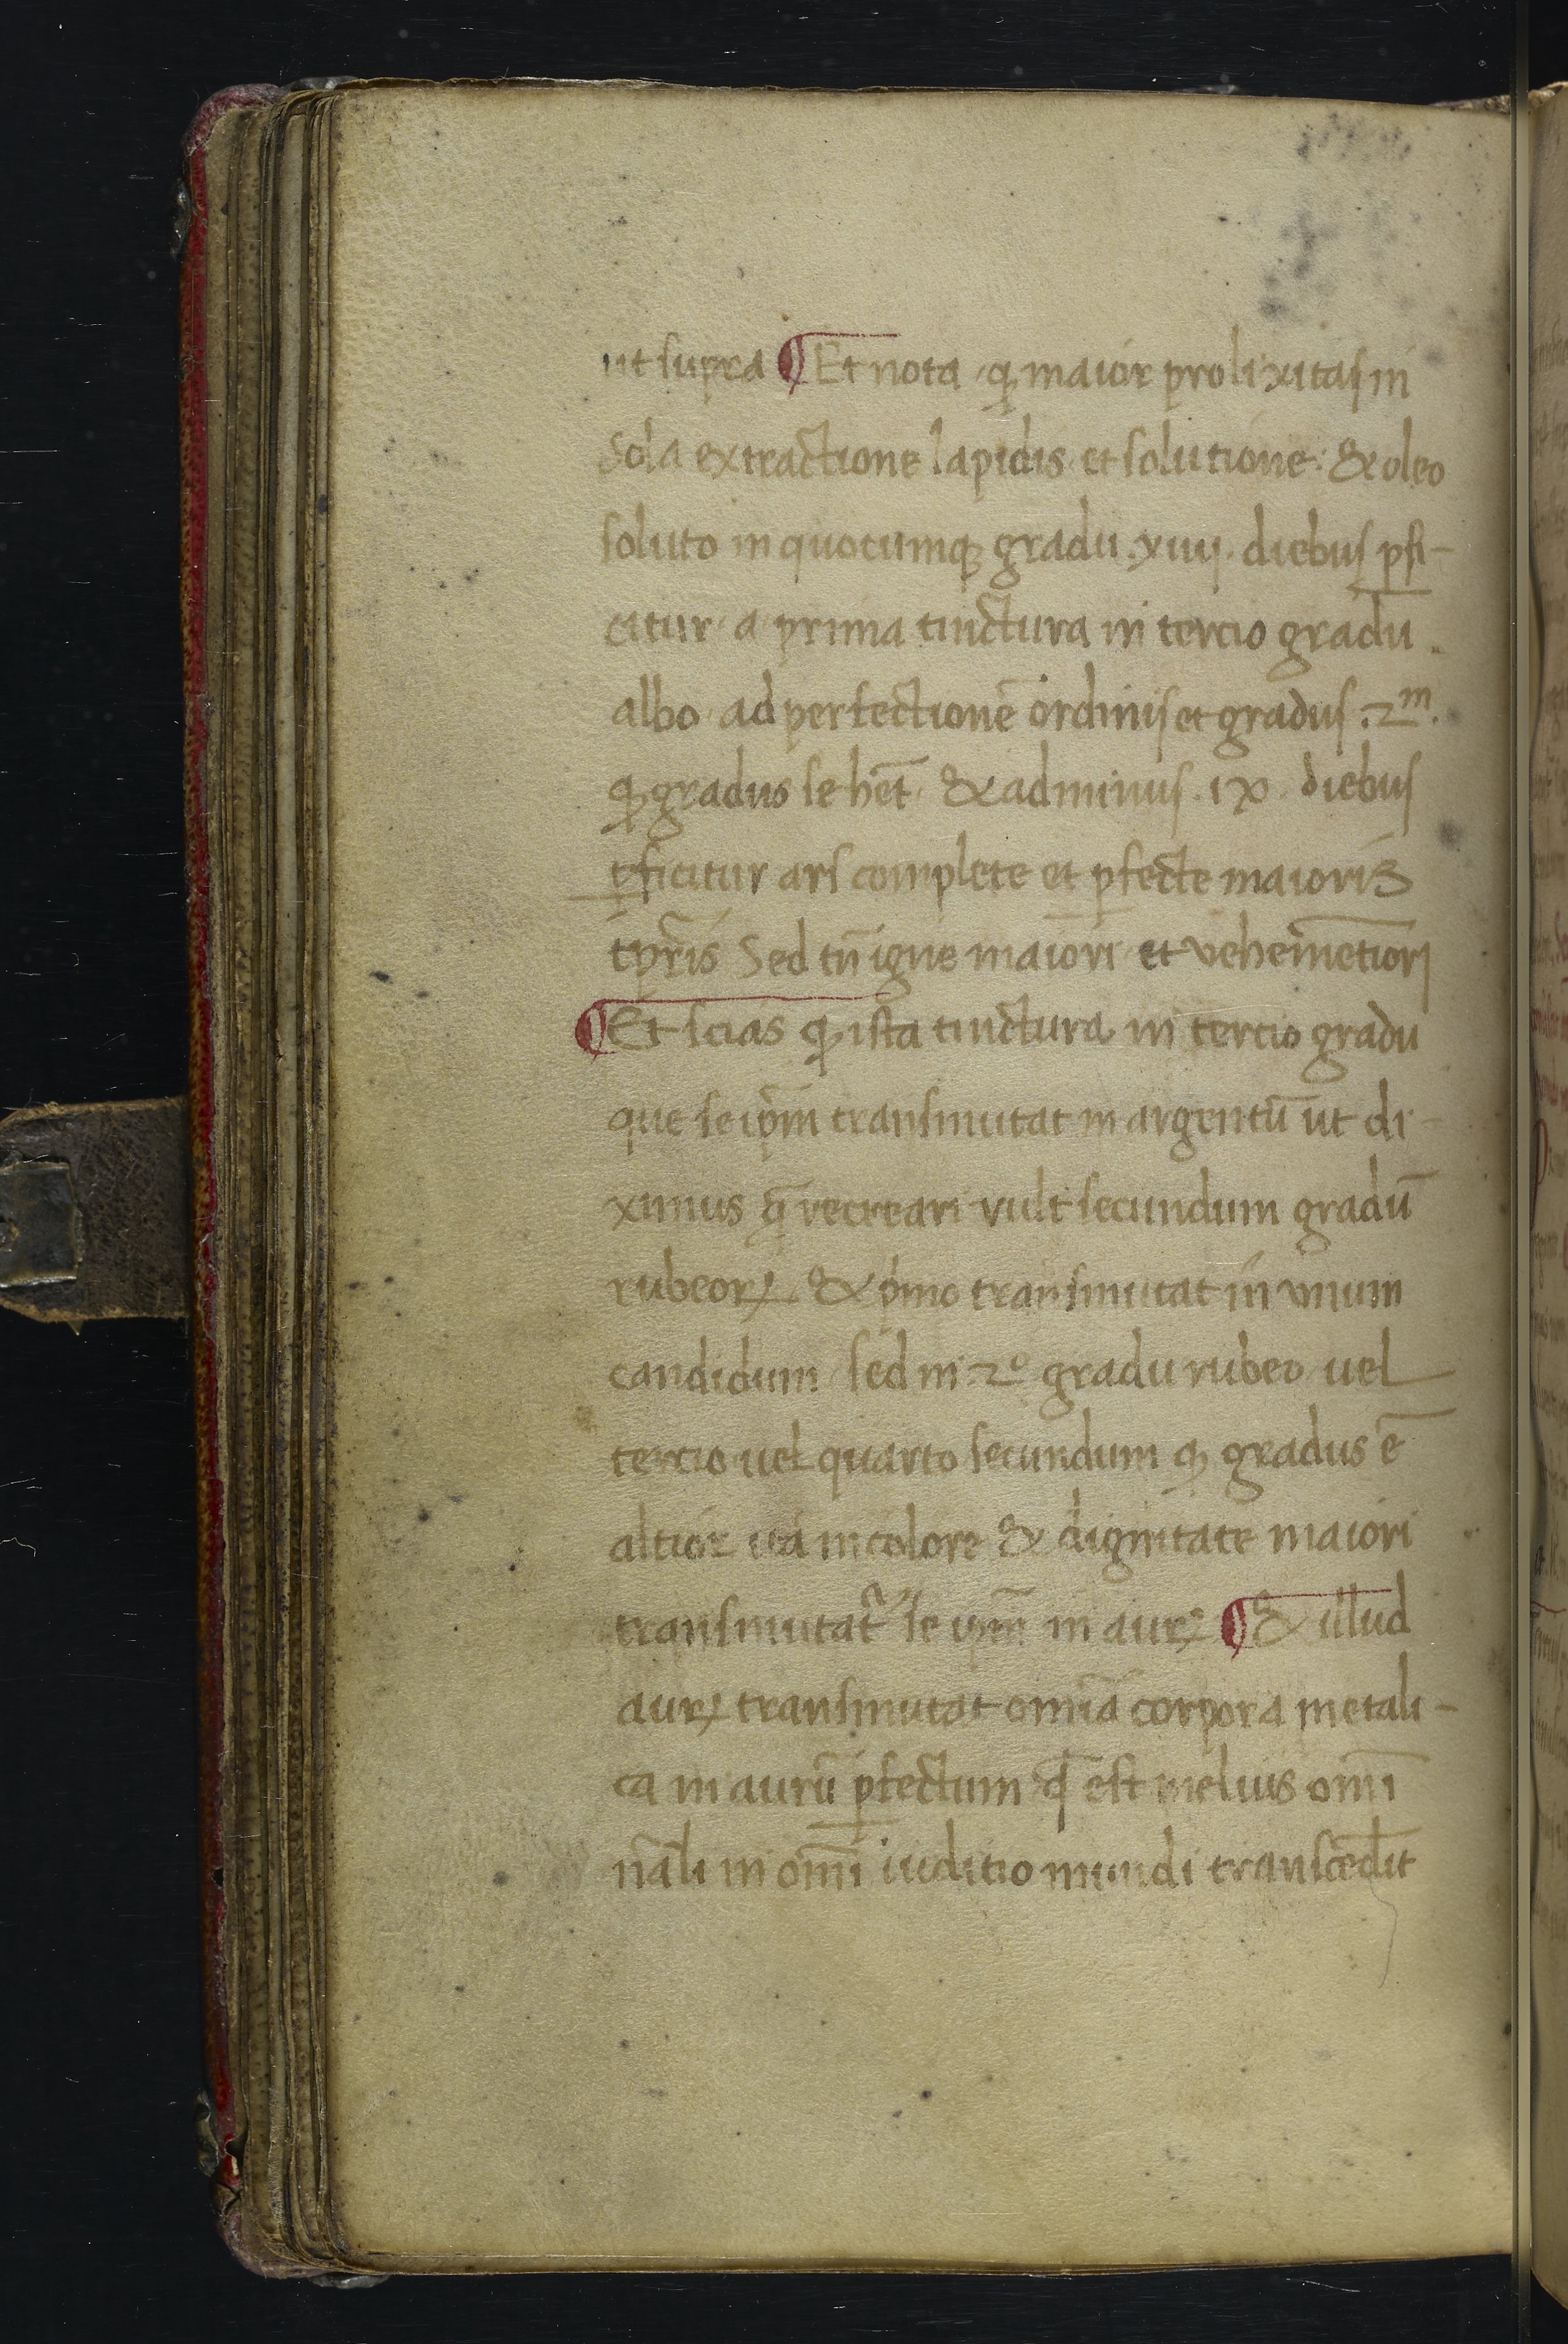 ut supra ¶ Et nota ꝙ maior prolixitas in
sola extractione lapidis et solutione: & oleo
soluto in quocumqꝫ gradu .xiiij. diebus ꝑfi-
citur a prima tinctura in tercio gradu.
albo ad perfectionē ordinis et gradus .2ᵐ.
ꝙ gradus se hēt & ad minus .ix. diebus
ꝑficitur ars complete et ꝑfecte maioris
tꝑris Sed tn̄ igne maiori et vehemētiori
¶ Et scias ꝙ ista tinctura in tercio gradu
que se ip̄m transmutat in argentū ut di-
ximus q̄ recreari vult secundum gradū
rubeoꝝ & pͥmo transmutat in vnum
candidum sed in 2º gradu rubeo uel
tercio uel quarto secundum ꝙ gradus ē
altior ita in colore & dignitate maiori
transmutat᷑ se ip̄m in auꝝ ¶ & illud
auꝝ transmutat omnia corpora metali-
ca in aurū ꝑfectum qđ est melius omī
nāli in omī iuditio mundi transcēdit